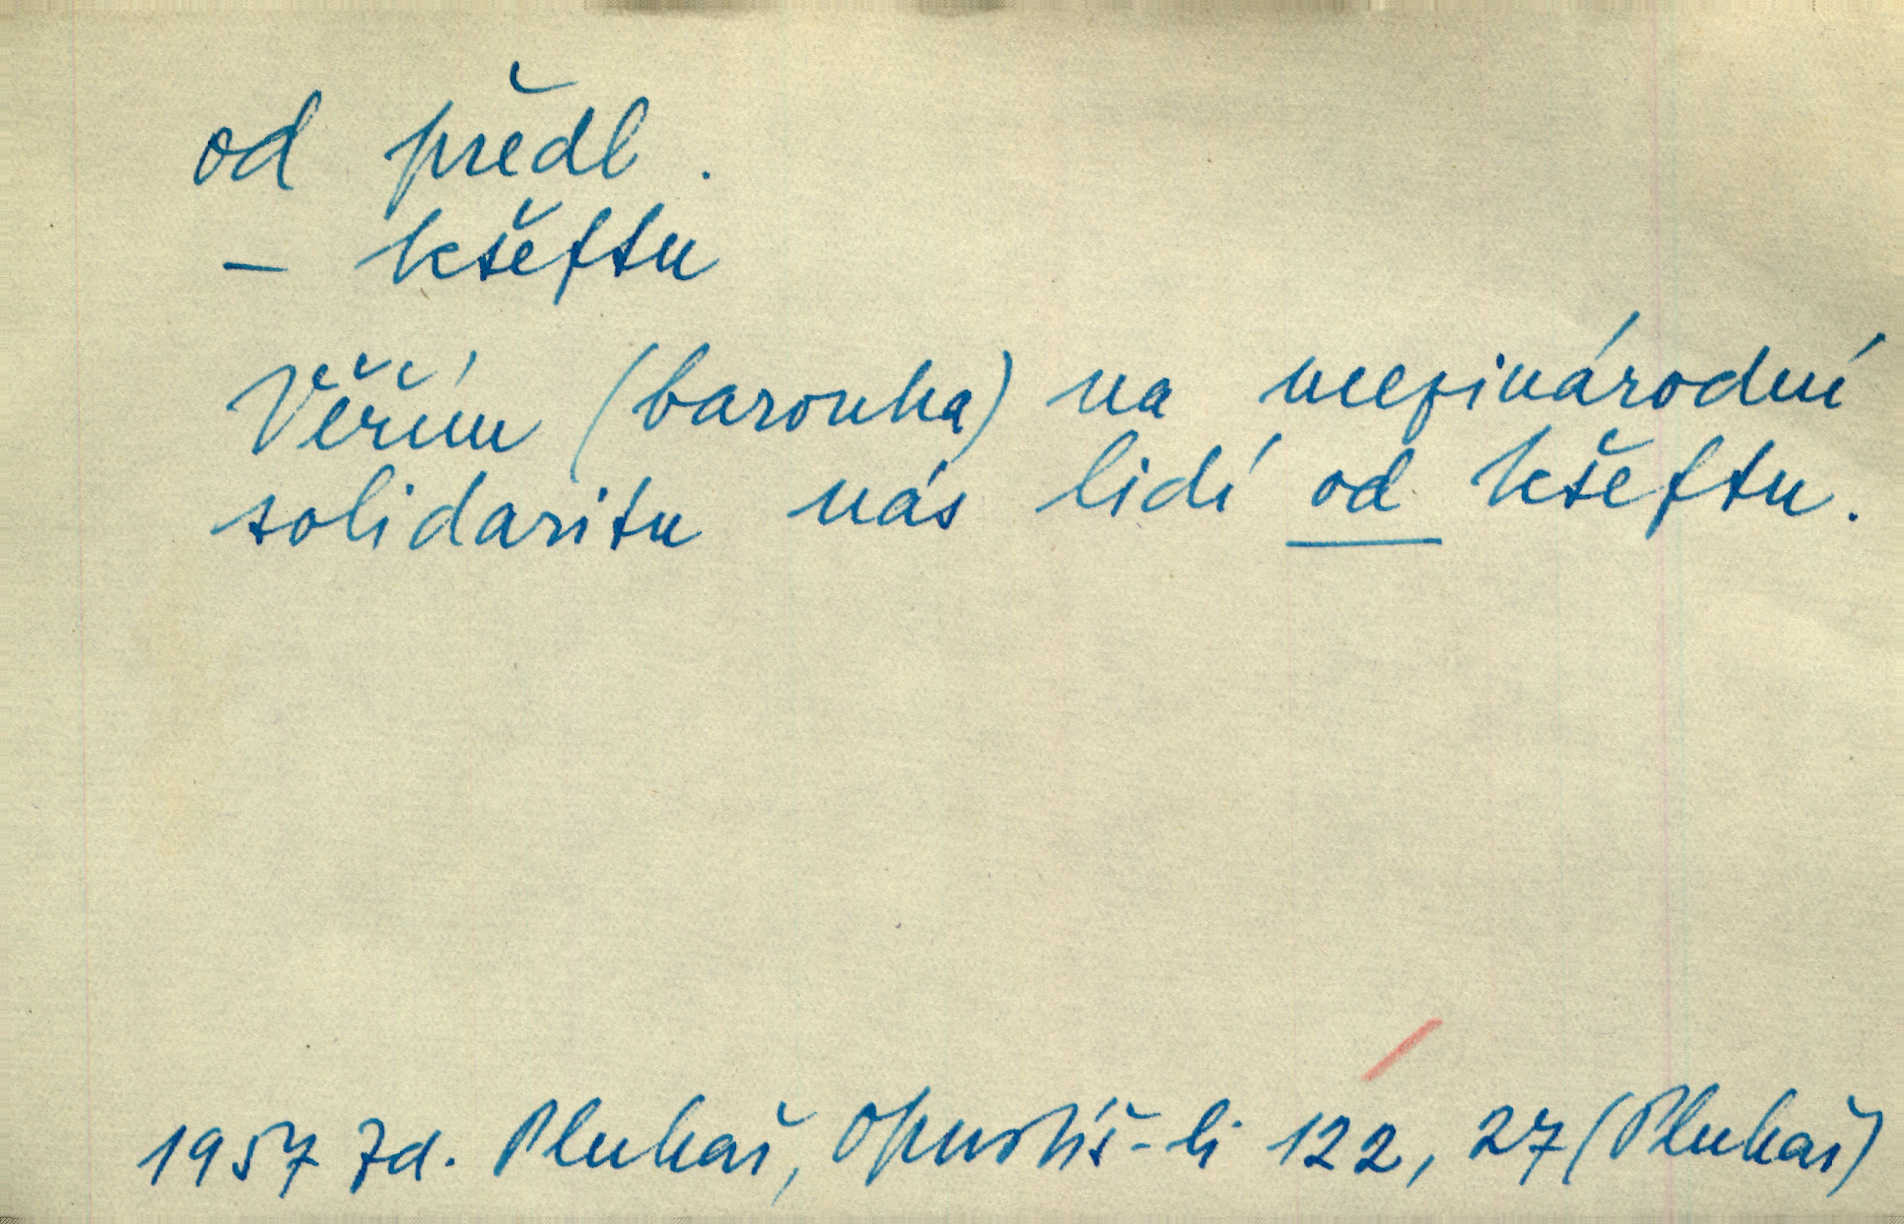 od předl.
– kšeftu
Věřím (baronka) na mezinárodní
solidaritu nás lidí od kšeftu.
1957 Zd. Pluhař, Opustíš-li 122, 27 (Pluhař)